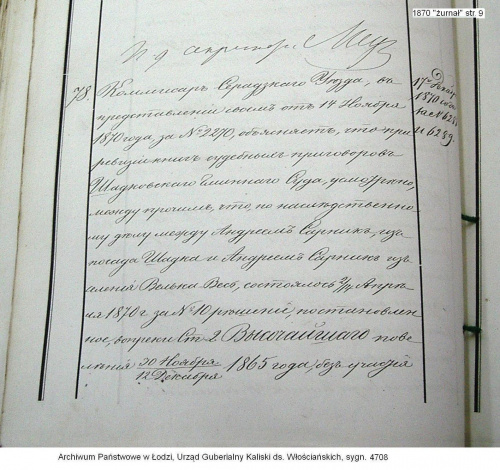 1870 "żurnał" str. 9
И д секретаря
78. Коммисаръ Серадзкаго Уѣзда, въ
представленіи своемъ отъ 14 Ноября
1870 года, за № 2270, объясняетъ, что при
ревизіи книгъ судебныхъ приговоровъ
Шадковскаго Гминнаго Суда, усмотрено,
между прочимъ, что, по наслѣдственно-
му дѣлу между Андреемъ Сарникъ, изъ
посада Шадка и Андреемъ Сарникъ изъ
имѣнія Велька Весь, состоялось Апрѣ-
ля 1870 г. за № 10 рѣшеніе, постановлен-
ное, вопреки Ст. 2 Высочайшаго пове-
лѣнія 20 Ноября / 12 Декабря 1865 года, безъ участія
17 Декабр.
1870
за № 628
и 6289.
Archiwum Państwowe w Łodzi, Urząd Guberialny Kaliski ds. Włościańskich, sygn. 4708